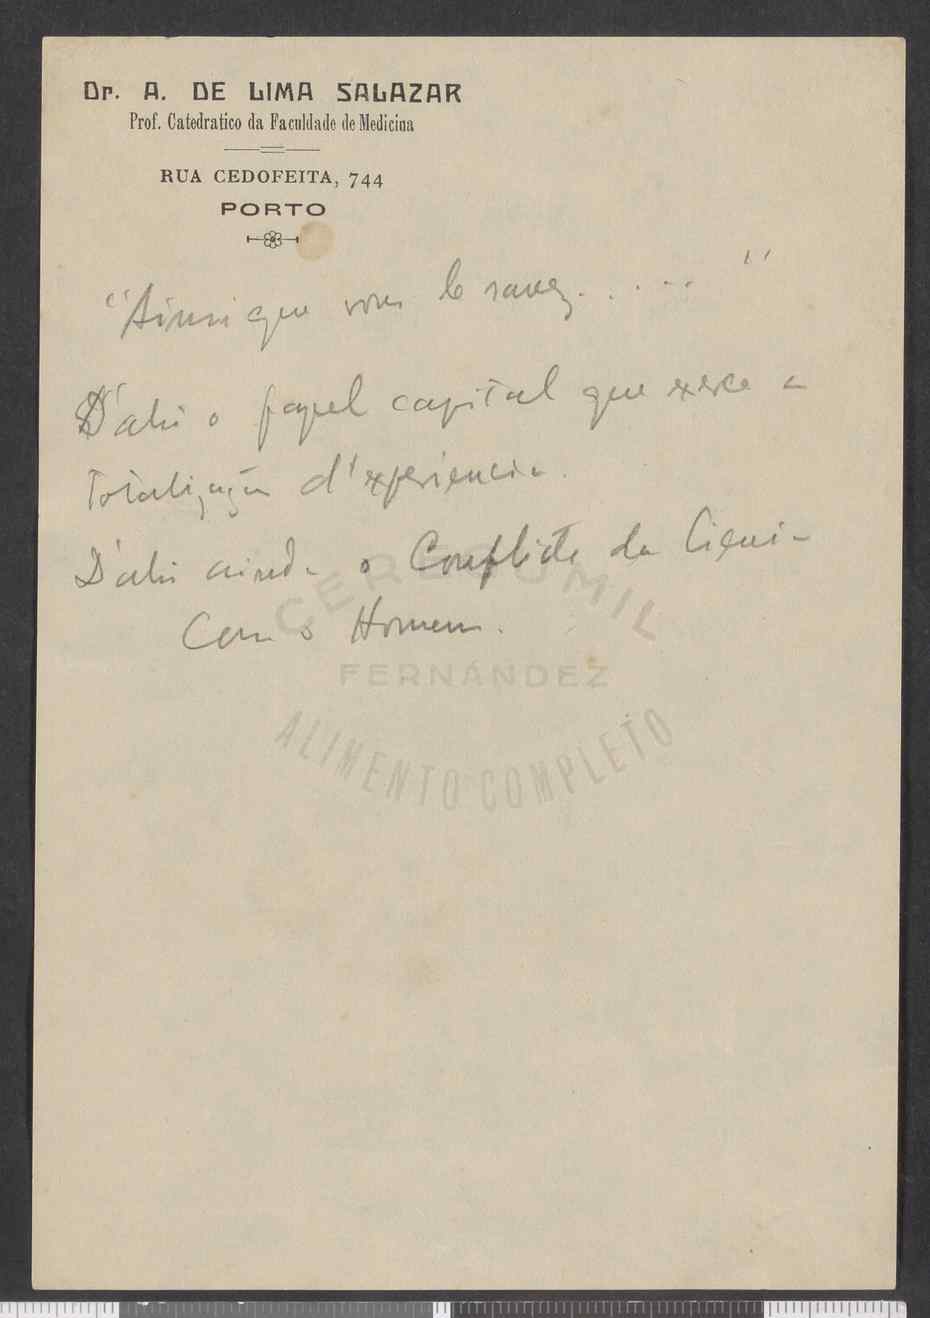 Dr. A. DE LIMA SALAZAR
Prof. Catedratico da Faculdade de Medicina
RUA CEDOFEITA, 744
PORTO
"Ainsi que vous le savez. . . . . "
D'ahi o papel capital que exerce a
totalização d'experiencia.
D'ahi ainda o Conflicto da Ciencia
Com o Homem.
CEREGUMIL
FERNÁNDEZ
ALIMENTO COMPLETO